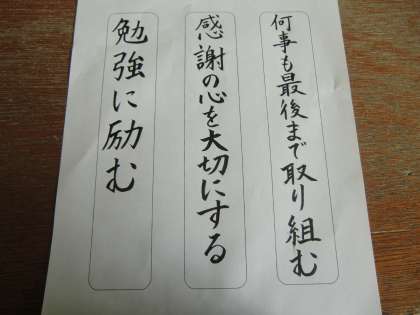 何事も最後まで取り組む
感謝の心を大切にする
勉強に励む